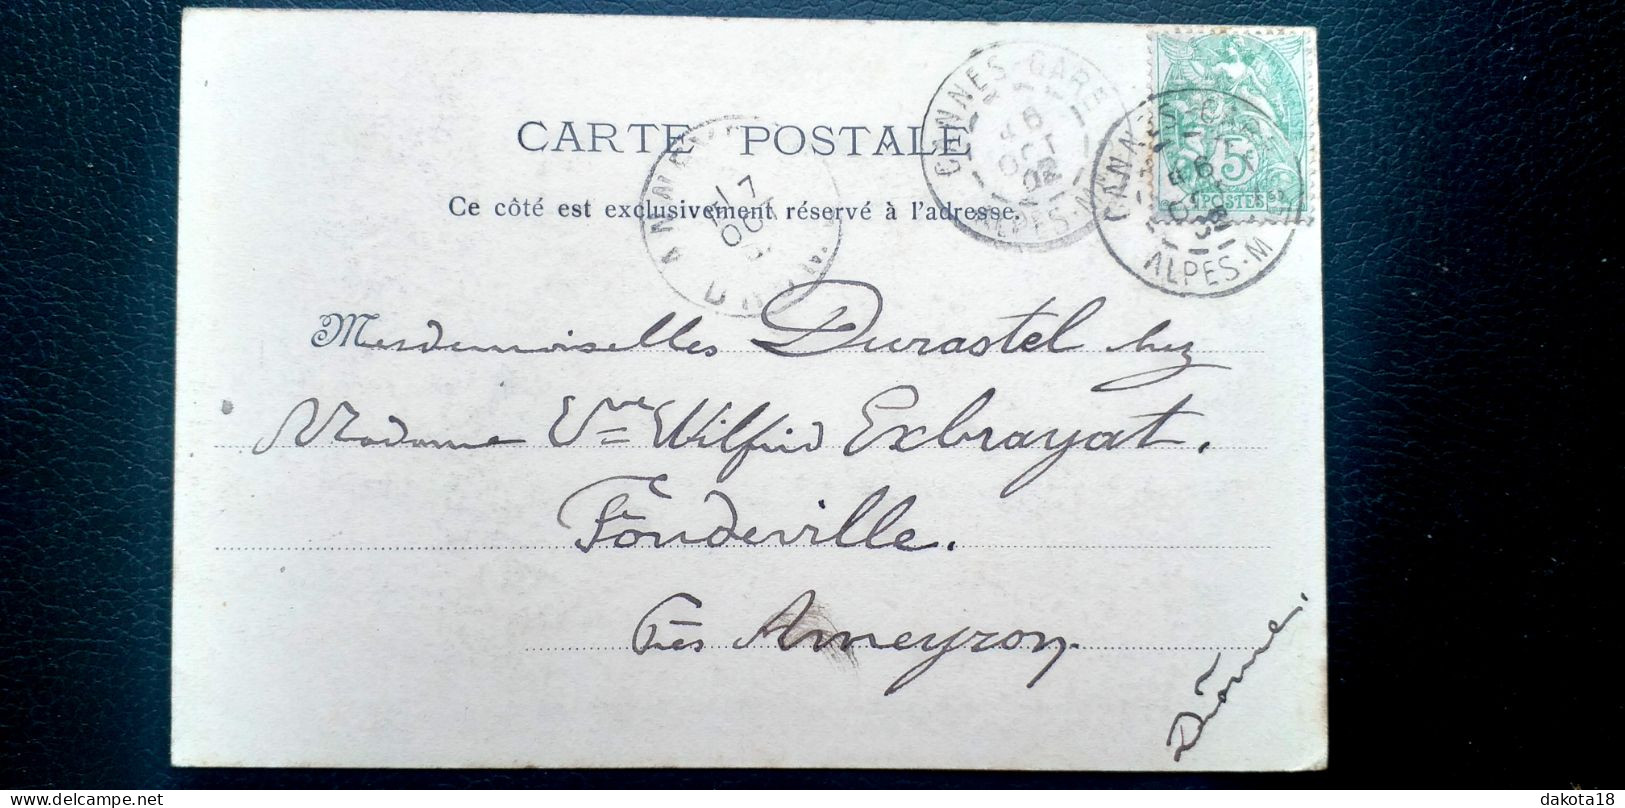 CARTE POSTALE
Ce côté est exclusivement réservé à l'adresse.
CANNES-GARE
6
OCT
02
ALPES-M
CANNES-GARE
6
ALPES-M
5
POSTES
7
OCT
Mesdemoiselles Durastel chez
Madame Vve Wilfrid Exbrayat.
Fondeville.
Près Anneyron.
Drôme.
dakota18